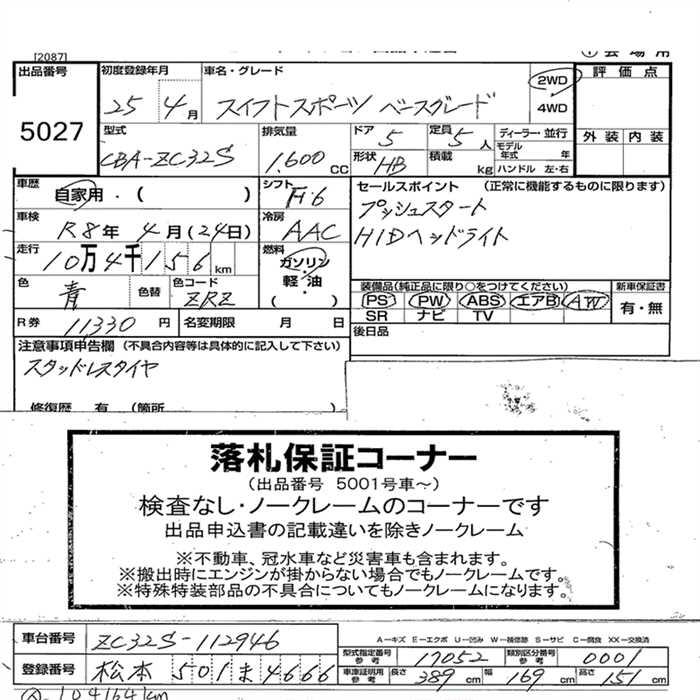 [2087]
出品番号
5027
初度登録年月
25 4月
車名・グレード
スイフトスポーツ ベースグレード
2WD
4WD
評価点
外装 内装
型式
CBA-ZC32S
排気量
1.600 CC
ドア 5
形状 HB
定員 5人
積載 kg
ディーラー・並行
モデル年式 年
ハンドル 左・右
車歴
自家用・( )
シフト
F・6
セールスポイント (正常に機能するものに限ります)
プッシュスタート
HIDヘッドライト
車検
R8年 4月(24日)
冷房
AAC
走行
10万4千156km
燃料
ガソリン・
軽・油・
( )
色
青
色替
色コード
ZRZ
装備品(純正品に限り○をつけてください)
PS PW ABS エアB AW
SR ナビ TV
新車保証書
有・無
R券 11330円
名変期限 月 日
後日品
注意事項申告欄 (不具合内容等は具体的に記入して下さい)
スタッドレスタイヤ
修復歴 有 (箇所
落札保証コーナー
(出品番号 5001号車~)
検査なし・ノークレームのコーナーです
出品申込書の記載違いを除きノークレーム
※不動車、冠水車など災害車も含まれます。
※搬出時にエンジンが掛からない場合でもノークレームです。
※特殊特装部品の不具合についてもノークレームになります。
車台番号 ZC32S-112946
A-キズ E-エクボ U-凹み W-補修跡 S-サビ C-腐食 XX-交換済
型式指定番号 参考 17052
類別区分番号 参考 0001
登録番号 松本 501 ま 4666
車庫証明用 参考 長さ 389cm 幅 169cm 高さ 151cm
104164km